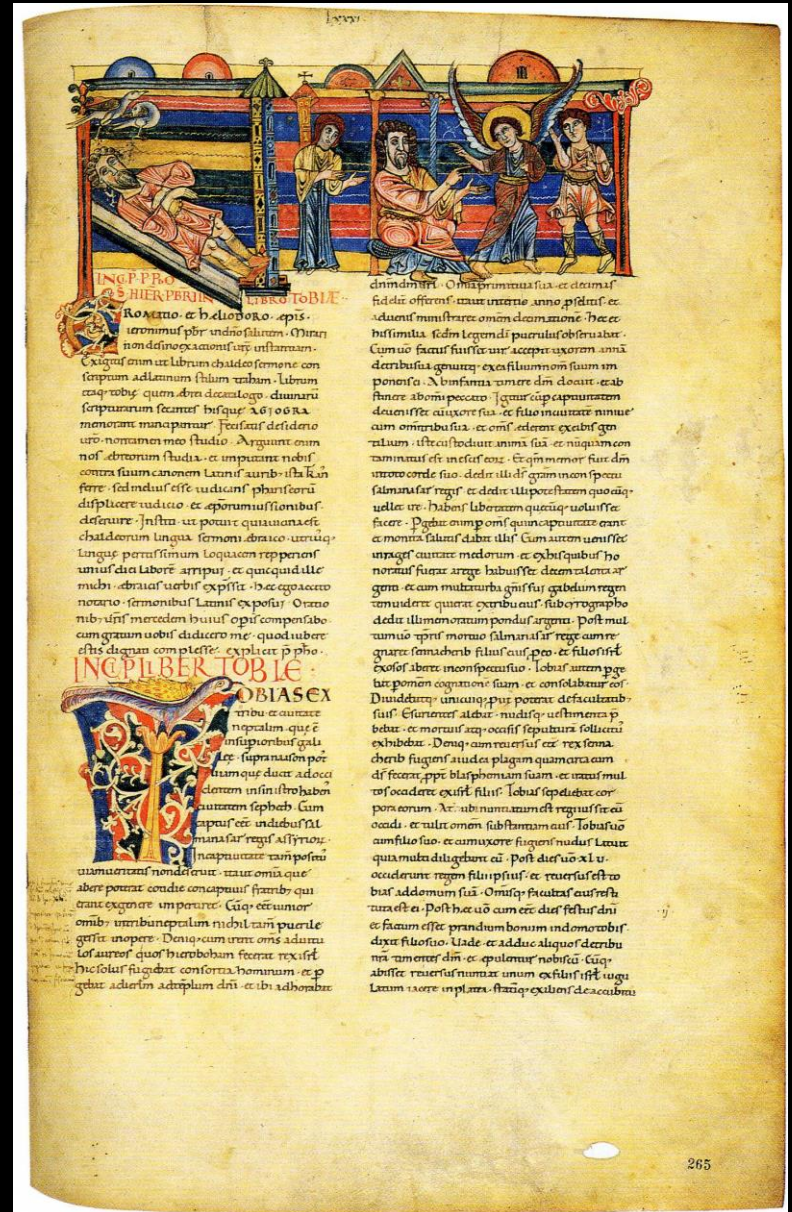 LXXXI
INCP. PRO
S HIER PBRI IN LIBRO TOBIÆ
CROMATIO et hELIODORO epis
ieronimus pbr in dno salutem. Mirari
non desino exactionis urē instantiam.
Exigitis enim ut librum chaldeo sermone con
scriptum ad latinum stilum traham. Librum
itaq. tobie quem ebrei de catalogo divinarū
scripturarum secantes his que AGIOGRA
memorant manciparunt. Feci satis desiderio
uro. non tamen meo studio. Arguunt enim
nos ebreorum studia. et imputant nobis
contra suum canonem Latinis aurib. ista tran
ferre. sed melius esse iudicans phariseorū
displicere iudicio. et eporum iussionibus
deservire. Institi ut potui et quia vicina est
chaldeorum lingua sermoni ebraico. utriusq.
lingue peritissimum Loquacem repperiens
unius diei laborē arripui. et quicquid ille
michi ebraicis verbis exp̄ssit. hec ego accito
notario. sermonibus Latinis exposui. Oratio
nib. uris mercedem huius opis compensabo.
cum gratum uobis didicero me. quod iubere
estis dignati complesse. explicit p̄pho.
INCP LIBER TOBIE.
TOBIAS EX
tribu et civitate
neptalim. que ē
in supioribus gali
lee. supra naason post
viam que ducit ad occi
dentem in sinistro haben
civitatem sepheth. Cum
captus eēt in diebus sal
manasar regis ASSYRIOR.
In captivitate tam positus
viam veritatis non deseruit. ita ut omia que
abere poterat cotidie concaptivis fratrib. qui
erant ex genere impertiret. Cūq. eēt iunior
omib. in tribu neptalim nichil tam puerile
gessit in opere. Deniq. cum irent oms ad vitu
Los aureos quos hieroboham fecerat rex isrl
hic solus fugiebat consortia hominum. et p
gebat ad ierlm ad templum dni. et ibi adhorabat
dnm dm isrl. Omia primitiva sua. et decimas
fideliter offerens. ita ut in tertio anno pselitis. et
advenis ministraret omem decimatione. hec et
his similia scdm legem di puerulus observabat.
Cum uō factus fuisset vir accepit uxorem annā
de tribu sua genuitq. ex ea filium nom suum im
ponens ei. Ab infantia timere dm docuit. et ab
stinere ab omi peccato. Igitur cū p captivitatem
devenisset cū uxore sua. et filio in civitate ninive
cum omi tribu sua. et oms. ederent ex cibis gen
tilium. iste custodivit anima suā. et nūquam con
taminatus est in escis eor. Et qm memor fuit dm
in toto corde suo. dedit illi ds gram in conspectu
salmanasar regis. et dedit illi potestatem quocūq.
vellet ire. habens libertatem quecūq. voluisset
facere. Pgebat enim p oms qui in captivitate erant
et monita salutis dabat illis. Cum autem venisset
in rages civitate medorum. et ex his quibus ho
noratus fuerat a rege habuisset decem talenta ar
genti. et cum multa turba gnis sui gabelum
temuideret qui erat ex tribu eius. sub cyrographo
dedit illi memoratum pondus argenti. Post mul
tum uō tpris mortuo salmanasar rege cum re
gnaret sennacherib filius eius p eo. et filios isrl
exosos aberet in conspectu suo. Tobias autem pge
bat p omem cognatione suam. et consolabatur eos.
Dividebatq. unicuiq. put poterat de facultatib.
suis. Esurientes alebat. nudisq. vestimenta p
bebat. et mortuis atq. occisis sepultura sollicitū
exhibebat. Deniq. cum reversus eēt rex senna
cherib fugiens a iudea plagam quam circa eum
ds fecerat ppt blasphemiam suam. et iratus mul
tos occideret ex isrl filiis. Tobias sepeliebat cor
pora eorum. At ubi nuntiatum est regi iussit eū
occidi. et tulit omem substantiam eius. Tobias uō
cum filio suo. et cum uxore fugiens nudus Latuit
quia multi diligebant eū. Post dies uō XLV.
occiderunt regem filii ipsius. et reversus est to
bias ad domum suā. Omisq. facultas eius resti
tuta est ei. Post hec uō cum eēt dies festus dni
et factum esset prandium bonum in domo tobis
dixit filio suo. Vade. et adduc aliquos de tribu
nrā timentes dm. et epulentur nobiscū. Cūq.
abisset reversus nuntiat unum ex filiis isrl iugu
latum iacere in platea. statīq. exiliens de accubitu
265